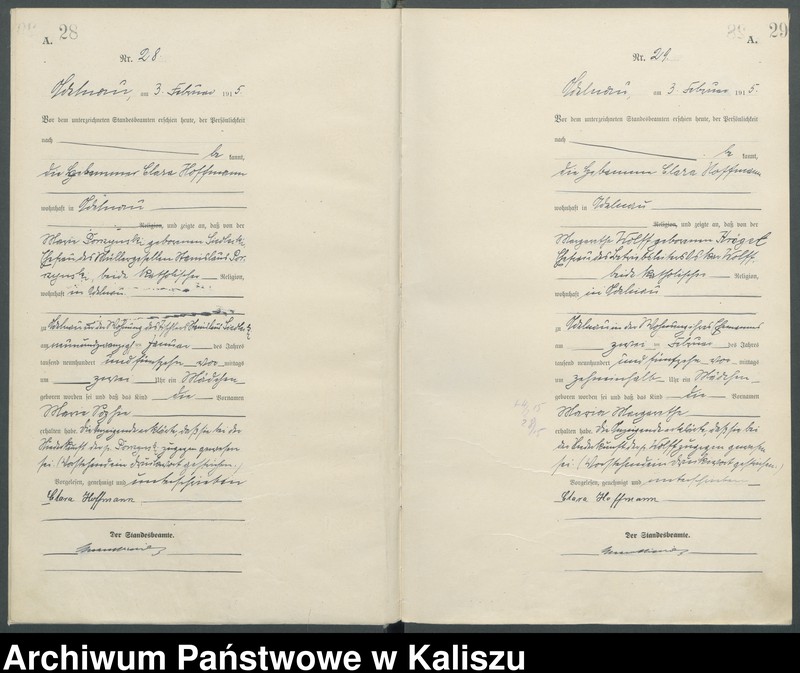 A. 28
Nr. 28
Adelnau, am 3. Februar 1915.
Vor dem unterzeichneten Standesbeamten erschien heute, der Persönlichkeit
nach
be kannt,
die Hebamme Clara Hoffmann
wohnhaft in Adelnau
Religion, und zeigte an, daß von der
Marie geborenen
Ehefrau des Müllergesellen Stanislaus
beide katholischer Religion,
wohnhaft in Adelnau
zu Adelnau in der Wohnung des
am neunundzwanzigsten Januar des Jahres
tausend neunhundert und fünfzehn vor mittags
um zwei Uhr ein Mädchen
geboren worden sei und daß das Kind die Vornamen
Marie Sophie
erhalten habe. Die Anzeigende erklärte, daß sie bei der
Niederkunft der zugegen gewesen
sei. (Vorstehend ein Druckwort gestrichen.)
Vorgelesen, genehmigt und unterschrieben
Clara Hoffmann
Der Standesbeamte.
A. 29
Nr. 29
Adelnau, am 3. Februar 1915.
Vor dem unterzeichneten Standesbeamten erschien heute, der Persönlichkeit
nach
be kannt,
die Hebamme Clara Hoffmann
wohnhaft in Adelnau
Religion, und zeigte an, daß von der
Margarethe Wolff geborenen
Ehefrau des Oskar Wolff
beide katholischer Religion,
wohnhaft in Adelnau
zu Adelnau in der Wohnung ihres Ehemannes
am zwei Februar des Jahres
tausend neunhundert und fünfzehn vor mittags
um zehneinhalb Uhr ein Mädchen
geboren worden sei und daß das Kind die Vornamen
Maria Margarethe
erhalten habe. Die Anzeigende erklärte, daß sie bei
der Niederkunft der Wolff zugegen gewesen
sei. (Vorstehend ein Druckwort gestrichen.)
Vorgelesen, genehmigt und unterschrieben
Clara Hoffmann
Der Standesbeamte.
Archiwum Państwowe w Kaliszu